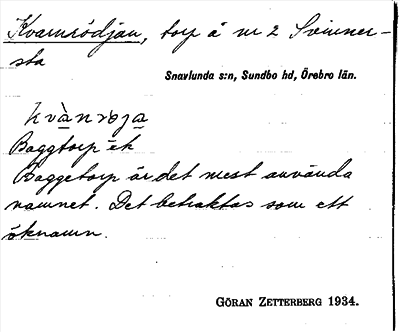 Kvarnrödjan, torp å nr 2 Svinner-
sta
Snavlunda s:n, Sundbo hd, Örebro län.
kvànrøja
Baggtorp ek
Baggetorp är det mest använda
namnet. Det betraktas som ett
öknamn.
GÖRAN ZETTERBERG 1934.